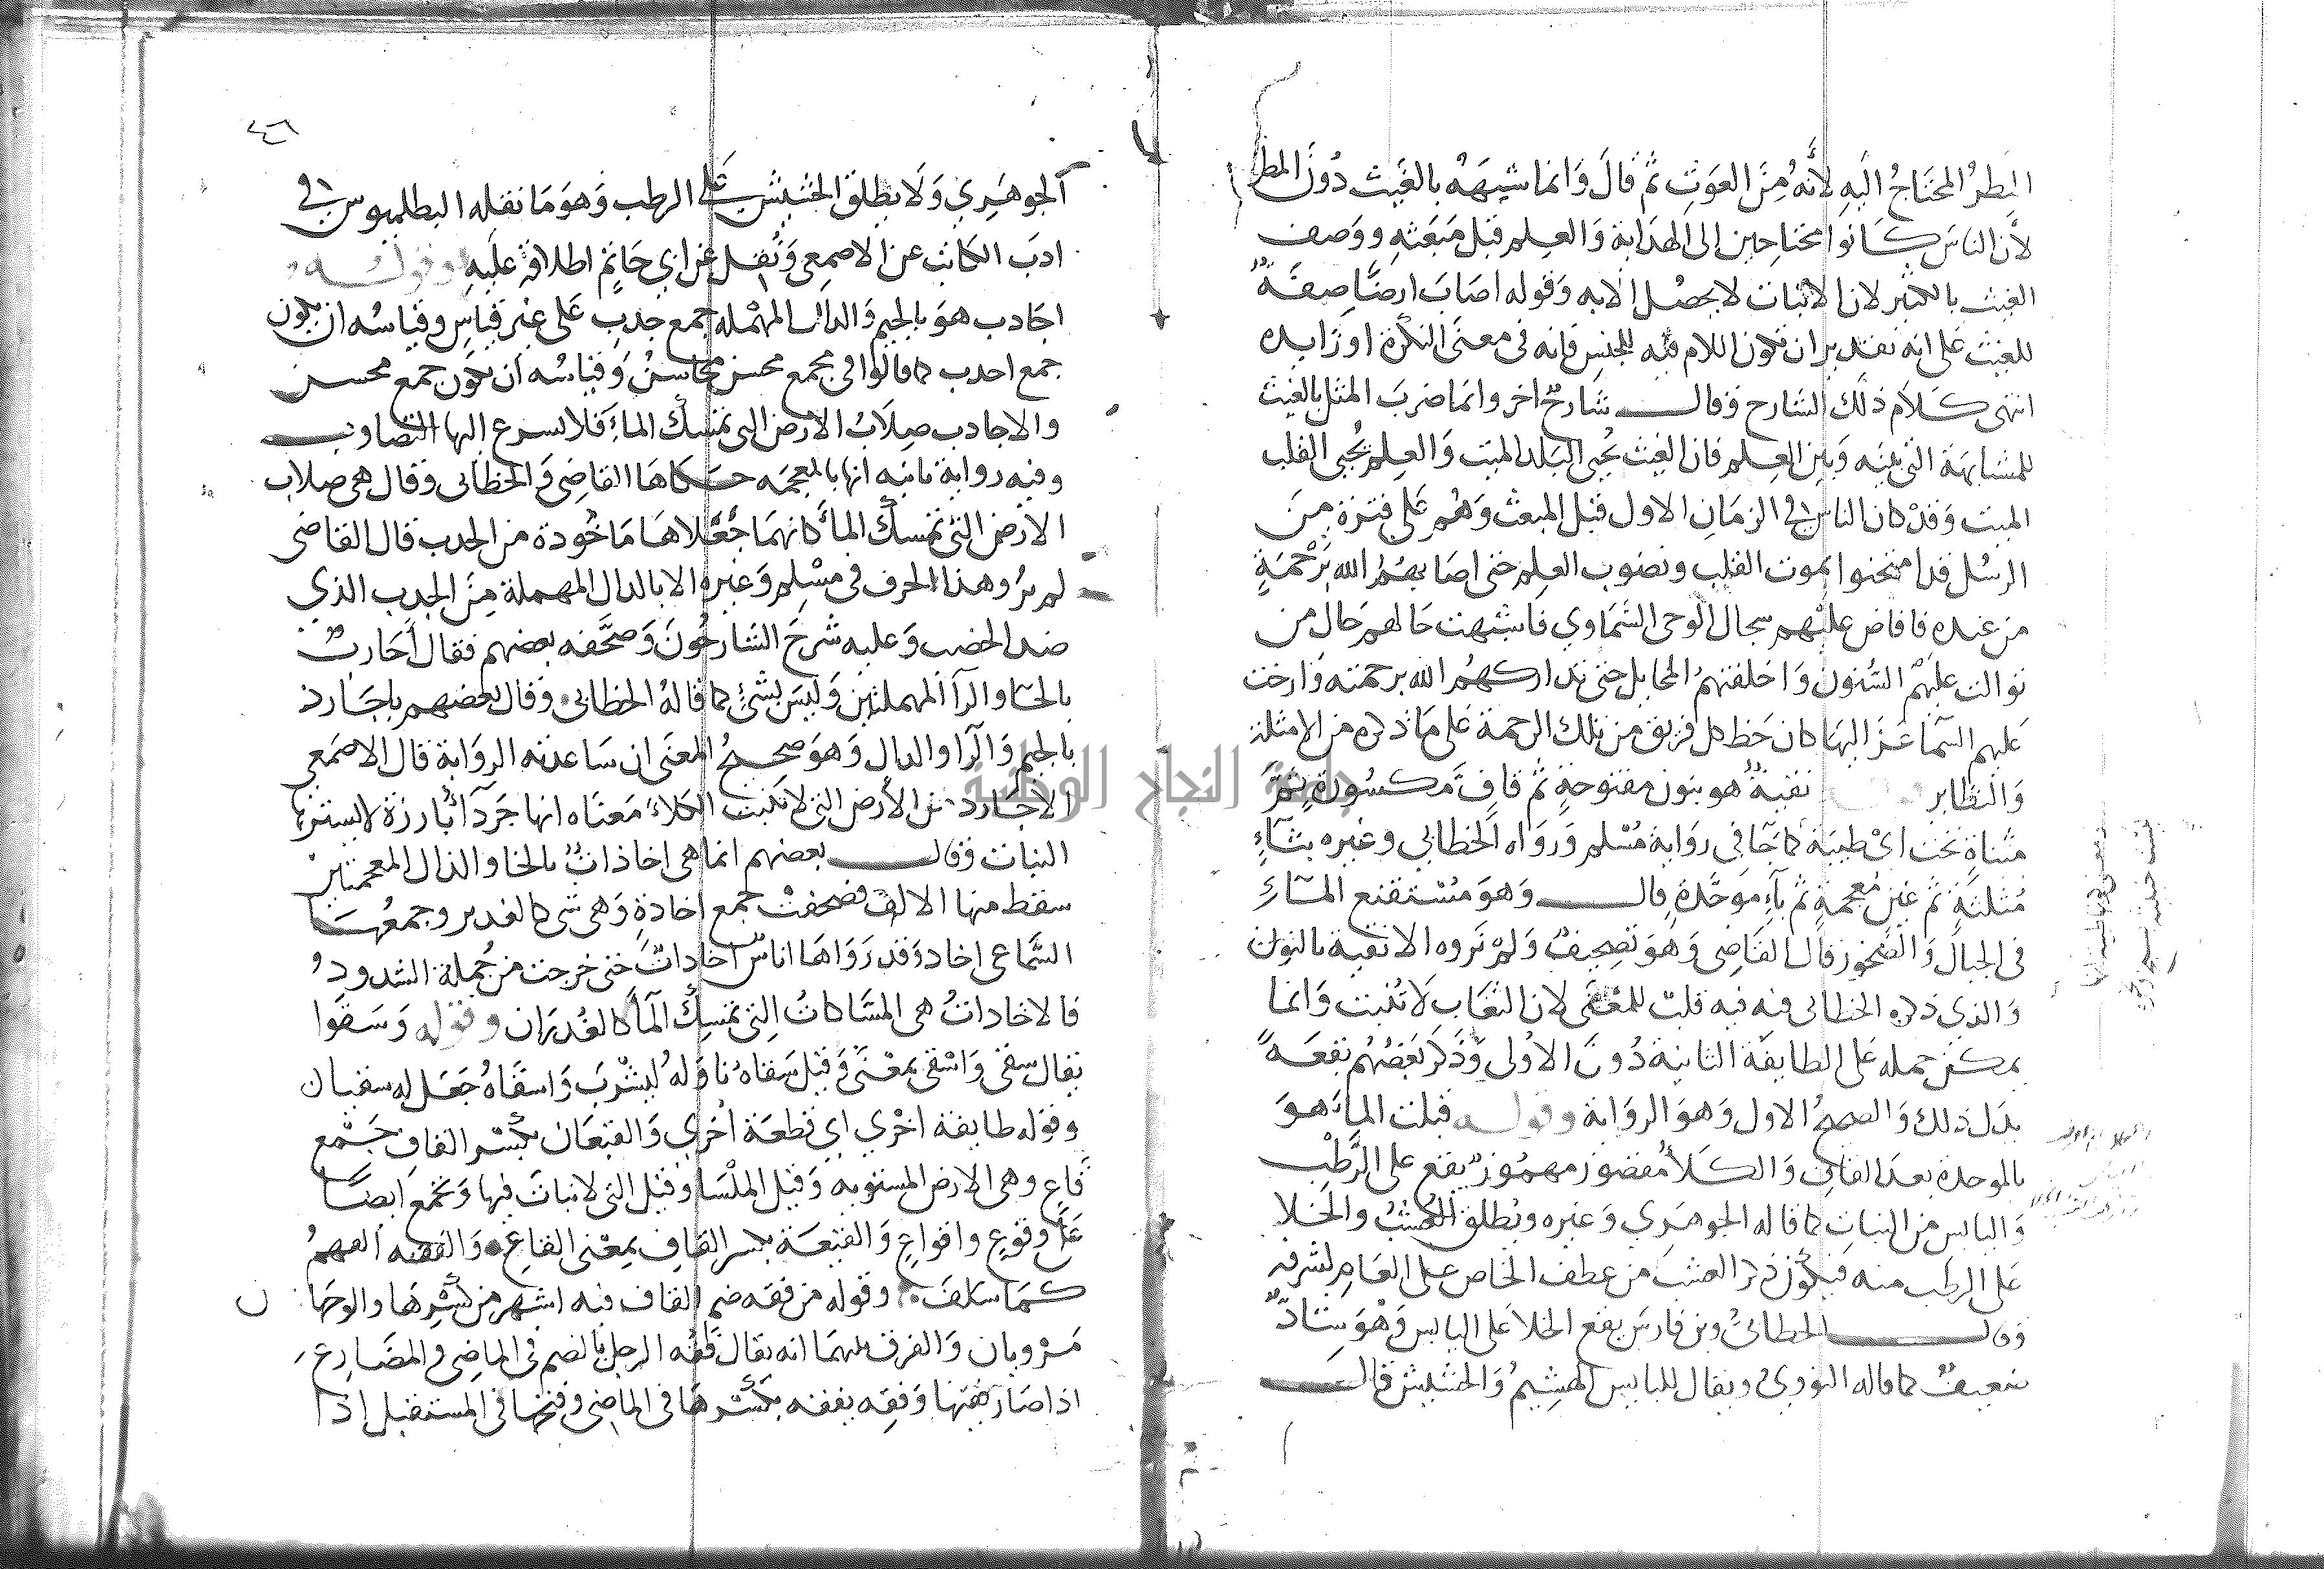 المطرُ المحتاجُ اليهِ لأنَّهُ مِنَ الغَوثِ ثمَّ قَالَ وَانما شبهَهُ بالغَيث دُونَ المطر
لأَن الناسَ كانوا محتاجين إلى الهدَاية وَالعِلم قبْل مَبعَثهِ ووَصف
الغيث بالكثير لان الانبات لا يحصُل الا به وَقوله اصَابَ ارضًا صِفةٌ
للغيث عَلى انه تقدير ان تكون اللام فيه للجنس فإنه فى معنى النكرة او زايده
انتهى كلام ذلك الشارح وقال شارحٌ اخر وانما ضربَ المثل بالغيث
للمشابهَة التى بينه وَبين العِلم فان الغيث يُحيى البَلد الميت وَالعِلم يُحيى القلب
الميت وَقدْ كان الناس فى الزمَان الاول قبْل المبعث وَهُم عَلى فترة مِن
الرسُل قد امتحنوا بموت القلب ونضوب العِلم حتى اصَابهمُ الله بَرحْمَةٍ
من عنده فافاض عليْهم سجال الوحى السَّماوي فاشبهت حَالهم حَال من
توالت عليْهم السُّنون وَاخلفتهمُ المخايل حتى تداركهمُ الله برحمته وَارخت
عَليهم السمَآ عَزَ اليهَا كان حَظ كل فريق من تلك الرحمة عَلى مَا ذكره من الامثلة
وَالنظاير نقيةٌ هو بنون مفتوحةٍ ثمَّ قافٍ مَكسُورةٍ ثمَّ
مثناةٍ تحت اىْ طيبَة كما جَآ فى روَاية مُسْلم وَروَاه الخطابي وغيره بثآءٍ
مُثلثةٍ ثمَّ غين مُعجمةٍ ثم بآءٍ مَوحَّدةٍ قال وَهوَ مُسْتنقع المآءِ
فى الجبال وَالصُّخور قال القَاضِى وَهوَ تصحيفٌ وَلمْ نَروه الا نقية بالنون
وَالذى ذكره الخطابى فيه قلبٌ للمعْنَى لان الثغاب لا تُنبت وَانما
يمكن حمله عَلى الطايفة الثانية دُونَ الاوُلى وَذكرَ بَعضُهُم بُقعَةً
بَدَل ذلك وَالصحيحُ الاول وَهوَ الروَاية وقوله قبلت المآ هوَ
بالموحدة بعدَ القافِ وَالكلأ مُقصُور مهمُوزٌ يقع على الرَّطْب
وَاليابس من النباتِ كما قاله الجوهَرِي وَغيره ويُطلق العشبُ والخلا
عَلى الرطب منه فيكون ذكر العشب من عطف الخاص على العَام لشرفه
وقال الخطابىُّ وبن فارسَ يقع الخلا عَلى اليابس وَهْوَ شاذٌّ
ضعيفٌ كما قاله النووىُّ ويقال لليابس الهشِيمُ وَالحشيش قال
٤٦
الجوهَرِي وَلا يطلق الحشيش عَلى الرطب وَهوَ مَا نقله البطليوسى فى
ادبَ الكاتب عن الاصمعِى وَنُقل عن ابي حَاتم اطلاقه عليهِ وقوله
اجَادب هوَ بالجيم وَالدال المهْملة جمع جَدبٍ عَلى غير قياس وقياسُه ان يكون
جمع اجدب كما قالوا فى جمع محسن محَاسنُ وَقياسُه ان يكون جمع محسن
والاجادب صِلابُ الارض التى تمسِك المآء فلا يسرع اليها النضاوب
وفيه روَاية ثانيه انها بالمعجمَه حَكاهَا القاضِى وَالخطابى وقال هى صِلاب
الارض التى تمسك المآ كانهمَا جَعَلاهَا مَاخوُدة من الجدب قال القاضى
لم يرُو هذا الحرف فى مسْلم وَغيره الا بالدال المهملة مِنَ الجدب الذي
ضد الخصب وَعليه شرحَ الشَارحُونَ وَصحَّفه بعضهم فقال أحَاربٌ
بالحآ والرآ المهملتين وَليسَ بشئٍ كما قالهُ الخطابى وقال بعضهم باجَارد
بالجيم وَالرآ والدال وَهوَ صحيحُ المعنَى ان سَاعدته الروَاية قال الاصمَعى
الاجَارد من الأرض التى لا تنبت الكلأ مَعنَاه انها جَردآ بَارزة لا يسترها
النبات وقال بعضهم انما هى اخاذاتٌ بالخا والذال المعجمتين
سقط منها الالف فصحفتْ جمع اخاذةٍ وَهى شى كالغدير وجمعُهَا
السَّماعى اخاد وَقد رَوَاهَا اناسٌ اخاداتٌ حتى خرجت من جُملة الشدودُ
فالاخاداتُ هى المسَاكاتُ التِى تمسِك المآ كالغُدرَان وقوله وَسَقوا
يقال سقى وَاسْقى بمعْنَى وَقيْل سَقاهُ ناوَله ليشرَبَ وَاسقَاهُ جَعَل له سقيان
وقوله طايفة اخْري اي قطعَة اخُرى وَالقيعَان بكسْر القاف جمع
قَاعٍ وهى الارض المستويه وَقيْل الملْسَا وَقيْل التى لا نبات فيها وَتجمع ايضًا
عَلى وقوع واقواعٍ وَالقيعَة بكسر القافِ بمعْنى القاع وَالفقه الفَهمُ
كمَا سَلفَ وقوله من فقه ضم القاف فيه اشهر من كسْرِهَا والوجهان
مَرْويان وَالفرق بينهمَا انه يقال فَقُه الرجل بالضم فى الماضى وَالمضَارِع
اذا صَار فقيهًا وَفقه يفقه بكسْرهَا فى الماضى وفتحها فى المستقبل اذا
جامعة النجاح الوطنية